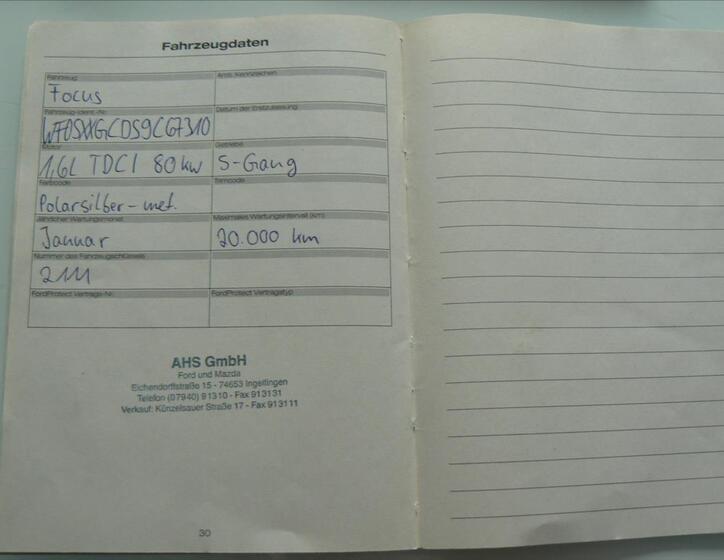 Fahrzeugdaten
Fahrzeug
Amtl. Kennzeichen
Focus
Fahrzeug-Ident.-Nr.
Datum der Erstzulassung
WF0SXXGCDS9C67310
Motor
Getriebe
1,6L TDCI 80 kw
5-Gang
Farbcode
Trimcode
Polarsilber-met.
Jährlicher Wartungsmonat
Maximales Wartungsintervall (km)
Januar
20.000 km
Nummer des Fahrzeugschlüssels
2111
FordProtect Vertrags-Nr.
FordProtect Vertragstyp
AHS GmbH
Ford und Mazda
Eichendorffstraße 15 - 74653 Ingelfingen
Telefon (07940) 91310 - Fax 913131
Verkauf: Künzelsauer Straße 17 - Fax 913111
30